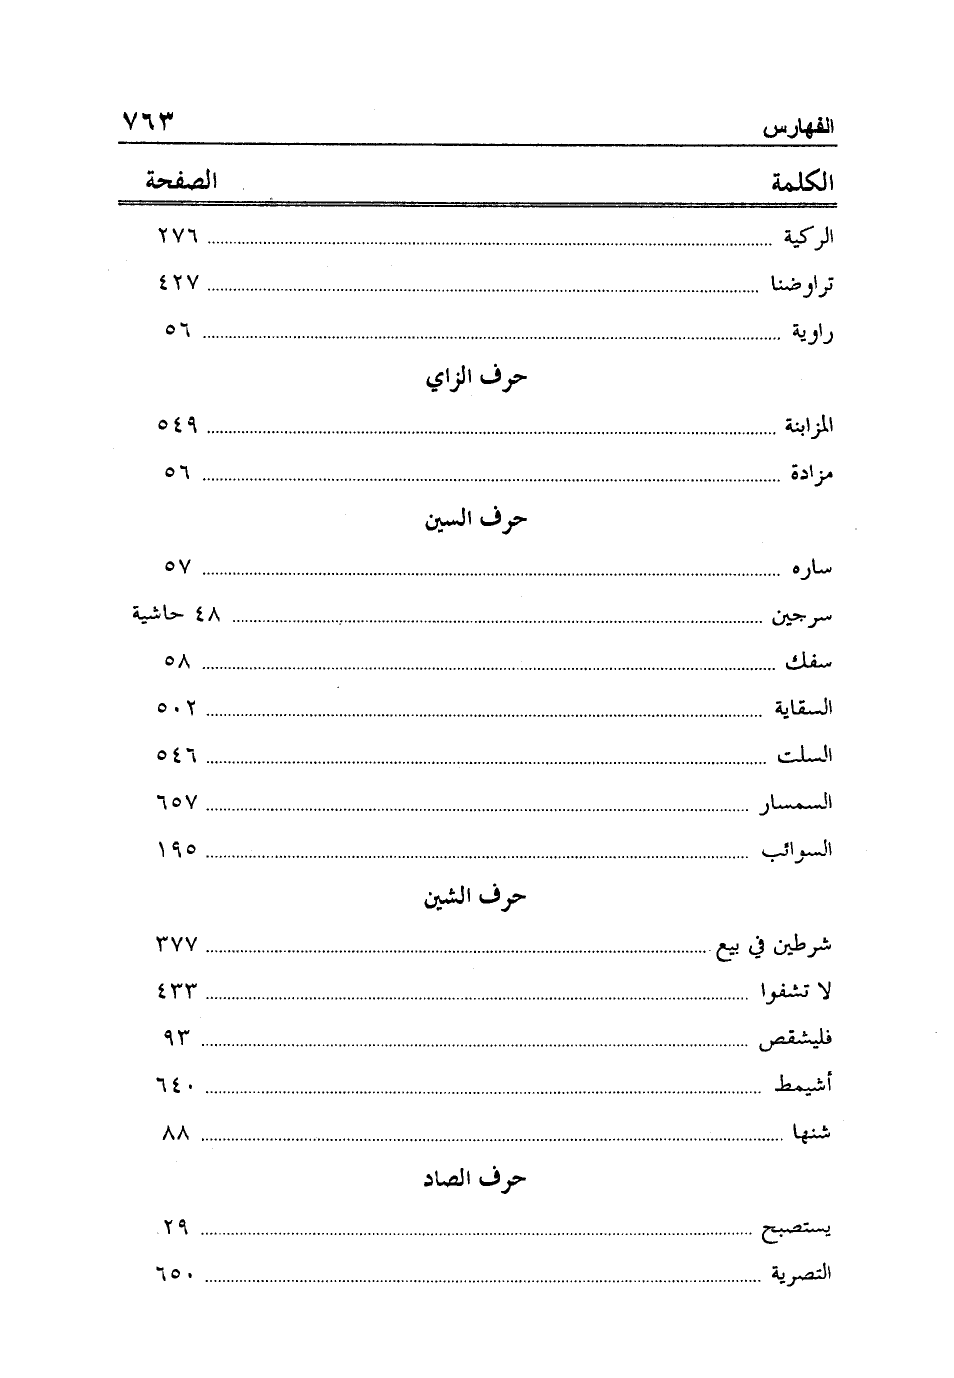 الفهارس ٧٦٣
الكلمة الصفحة
الركية ٢٧٦
تراوضنا ٤٢٧
راوية ٥٦
حرف الزاي
المزابنة ٥٤٩
مزادة ٥٦
حرف السين
ساره ٥٧
سرجين ٤٨ حاشية
سفك ٥٨
السقاية ٥٠٢
السلت ٥٤٦
السمسار ٦٥٧
السوائب ١٩٥
حرف الشين
شرطين في بيع ٣٧٧
لا تشفوا ٤٣٣
فليشقص ٩٣
أشيمط ٦٤٠
شنها ٨٨
حرف الصاد
يستصبح ٢٩
التصرية ٦٥٠